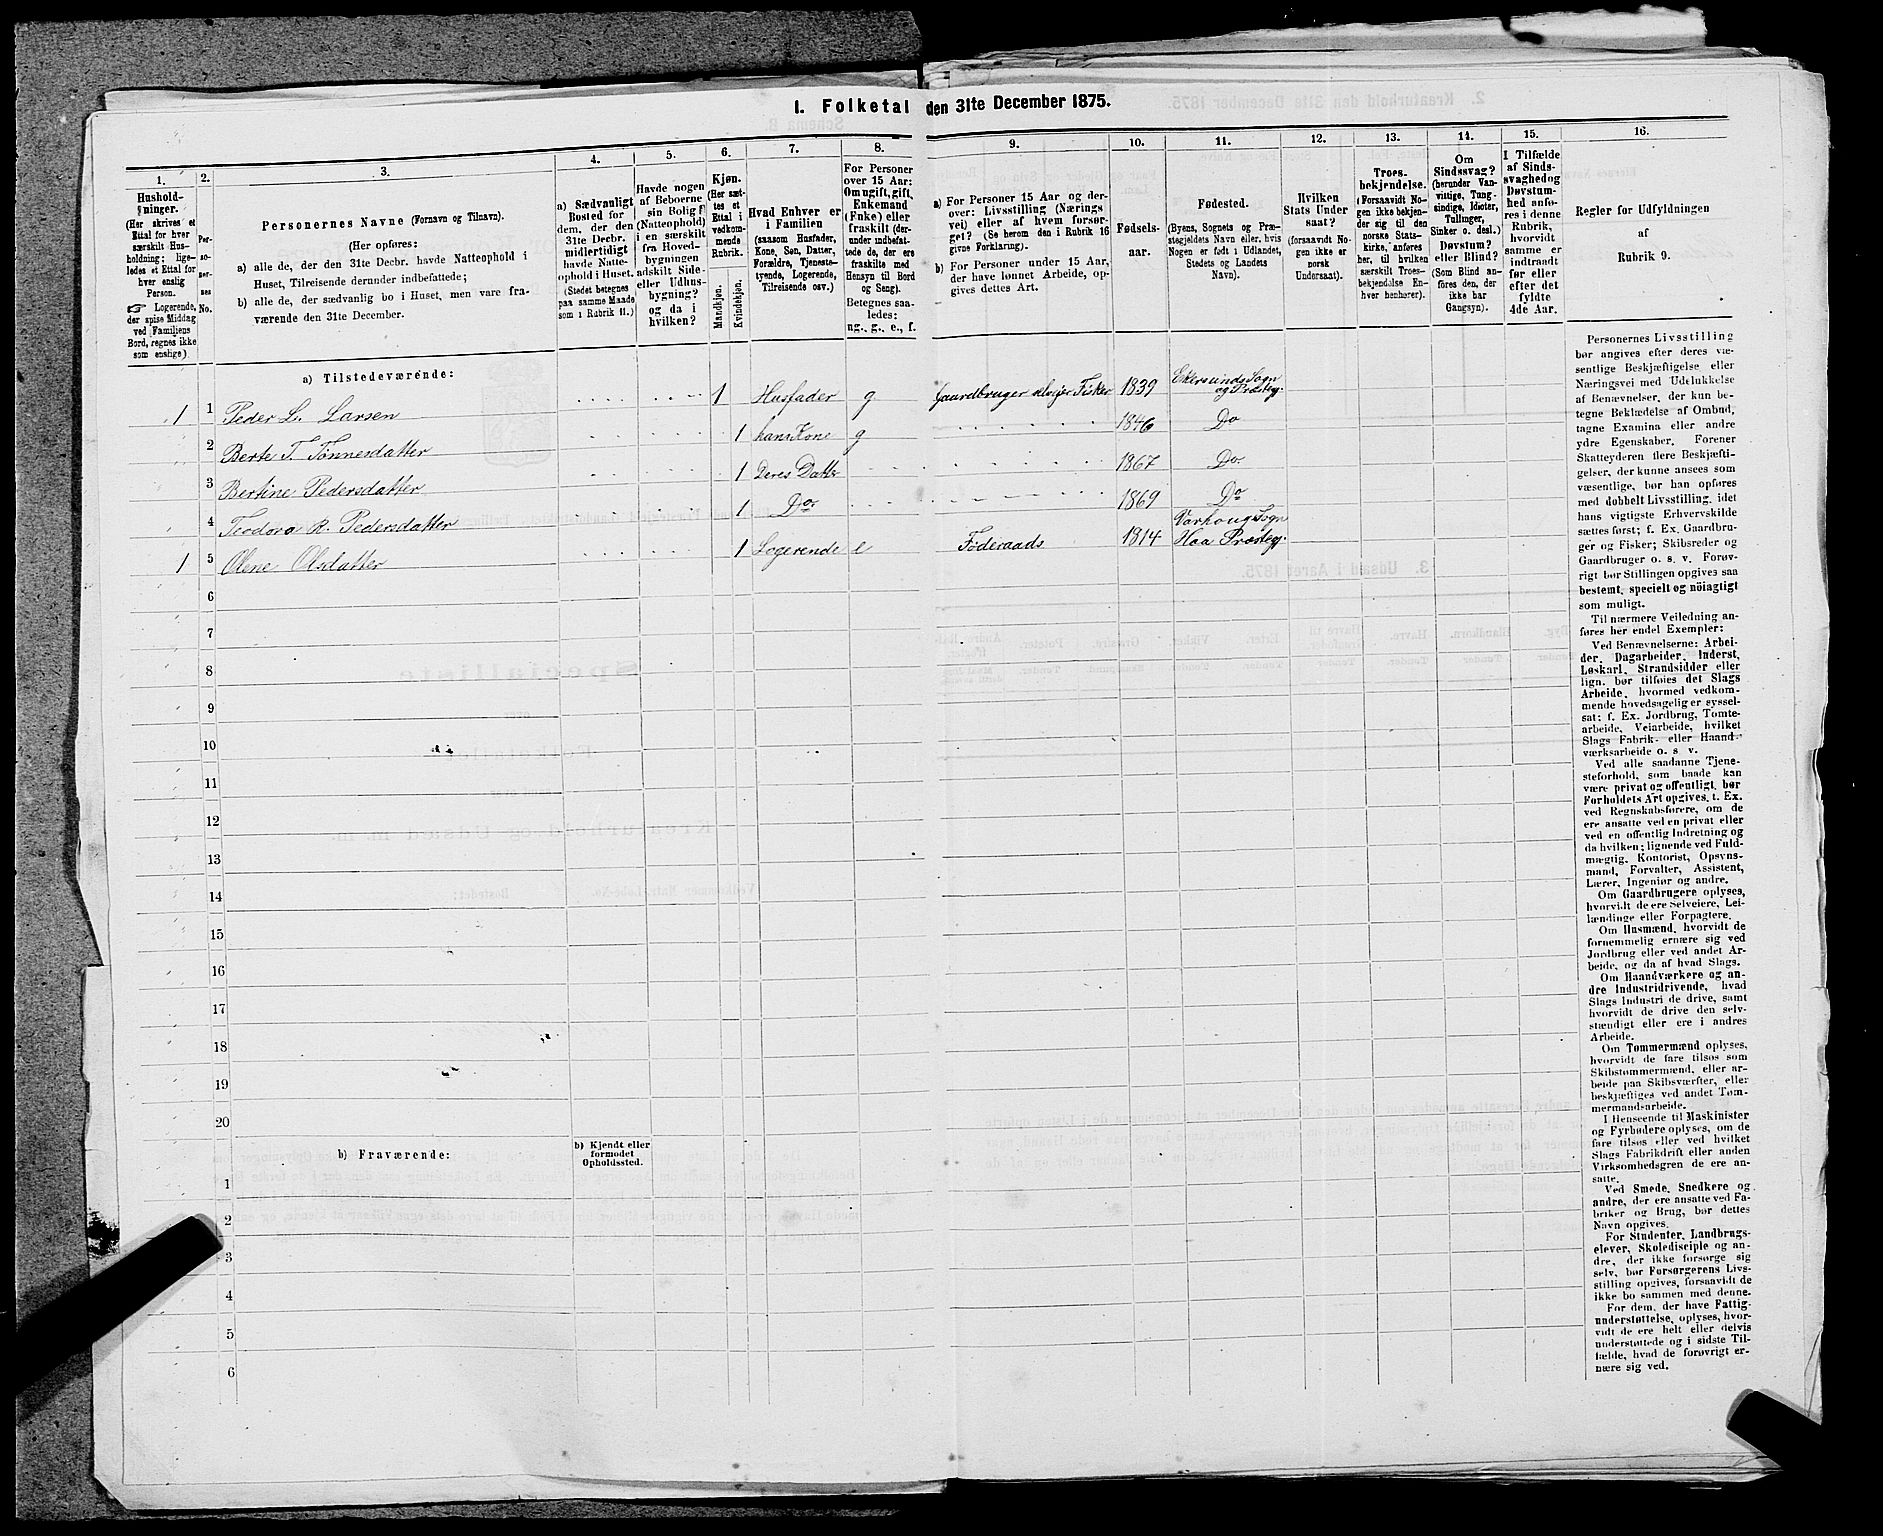 1. Folketal den 31te December 1875.
1.
Hushold-
ninger.
(Her skrives et
Ettal for hver
særskilt Hus-
holdning; lige-
ledes et Ettal for
hver enslig
Person.
☞ Logerende,
der spise Middag
ved Familiens
Bord, regnes ikke
som enslige)
2.
Per-
so-
ner-
nes
No.
3.
Personernes Navne (Fornavn og Tilnavn).
(Her opføres:
a) alle de, der den 31te Decbr. havde Natteophold i
Huset, Tilreisende derunder indbefattede;
b) alle de, der sædvanlig bo i Huset, men vare fra-
værende den 31te December.
4.
a) Sædvanligt
Bosted for
dem, der den
31te Decbr.
midlertidigt
havde Natte-
ophold i Huset.
(Stedet betegnes
paa samme Maade
som i Rubrik 11.)
5.
Havde nogen
af Beboerne
sin Bolig
(Natteophold)
i en særskilt
fra Hoved-
bygningen
adskilt Side-
eller Udhus-
bygning?
og da i
hvilken?
6.
Kjøn.
(Her sæt-
tes et
Ettal i
vedkom-
mende
Rubrik.
Mandkjøn.
Kvindekjøn.
7.
Hvad Enhver er
i Familien
(saasom Husfader,
Kone, Søn, Datter,
Forældre, Tjeneste-
tyende, Logerende,
Tilreisende osv.)
8.
For Personer
over 15 Aar:
Om ugift, gift,
Enkemand
(Enke) eller
fraskilt (der-
under indbefat-
tede de, der ere
fraskilte med
Hensyn til Bord
og Seng).
Betegnes saa-
ledes:
ug., g., e., f.
9.
a) For Personer 15 Aar og der-
over: Livsstilling (Nærings
vei) eller af hvem forsør-
get? (Se herom den i Rubrik 16
givne Forklaring).
b) For Personer under 15 Aar,
der have lønnet Arbeide, op-
gives dettes Art.
10.
Fødsels-
aar.
11.
Fødested.
(Byens, Sognets og Præ-
stegjeldets Navn eller, hvis
Nogen er født i Udlandet,
Stedets og Landets
Navn).
12.
Hvilken
Stats Under
saat?
(forsaavidt No-
gen ikke er
norsk
Undersaat).
13.
Troes-
bekjendelse.
(Forsaavidt No-
gen ikke bekjen-
der sig til den
norske Stats-
kirke, anføres
her, til hvilken
særskilt Troes-
bekjendelse En-
hver henhører).
14.
Om
Sindssvag?
(herunder Van-
vittige, Tung-
sindige, Idioter,
Tullinger,
Sinker o. desl.)
Døvstum?
eller Blind?
(Som Blind an-
føres den, der
ikke har
Gangsyn).
15.
I Tilfælde
af Sinds-
svaghed og
Døvstum-
hed anfø-
res i denne
Rubrik,
hvorvidt
samme er
indtraadt
før eller
efter det
fyldte
4de Aar.
16.
Regler for Udfyldningen
af
Rubrik 9.
a) Tilstedeværende:
1 1 Peder L. Larsen 1 Husfader g Gaardbruger selveier Fisker 1839 Ekersunds Sogn og Præsteg.
2 Berte T. Tønnesdatter 1 hans Kone g 1846 Do
3 Bertine Pedersdatter 1 Deres Datter 1867 Do.
4 Teodora R. Pedersdatter 1 Do 1869 Do
1 5 Olene Olsdatter 1 Logerende e Føderaads 1814 Varhoug Sogn Haa Præsteg.
6
7
8
9
10
11
12
13
14
15
16
17
18
19
20
b) Fraværende:
b) Kjendt eller
formodet
Opholdssted.
1
2
3
4
5
6
Personernes Livsstilling
bør angives efter deres væ-
sentlige Beskjæftigelse eller
Næringsvei med Udelukkelse
af Benævnelser, der kun be-
tegne Beklædelse af Ombud,
tagne Examina eller andre
ydre Egenskaber. Forener
Skatteyderen flere Beskjæfti-
gelser, der kunne ansees som
væsentlige, bør han opføres
med dobbelt Livsstilling, idet
hans vigtigste Erhvervskilde
sættes først; f. Ex. Gaardbru-
ger og Fisker; Skibsreder og
Gaardbruger o. s. v. Forøv-
rigt bør Stillingen opgives saa
bestemt, specielt og nöiagtigt
som muligt.
Til nærmere Veiledning an-
føres her endel Exempler:
Ved Benævnelserne: Arbei-
der, Dagarbeider, Inderst,
Løskarl, Strandsidder eller
lign. bør tilføies det Slags
Arbeide, hvormed vedkom-
mende hovedsagelig er syssel-
sat: f. Ex. Jordbrug, Tomte-
arbeide, Veiarbeide, hvilket
Slags Fabrik- eller Haand-
værksarbeide o. s v.
Ved alle saadanne Tjene-
steforhold, som baade kan
være privat og offentligt, bør
Forholdets Art opgives, t. Ex.
ved Regnskabsførere, om de
ere ansatte ved en privat eller
ved en offentlig Indretning og
da hvilken; lignende ved Fuld-
mægtig, Kontorist, Opsyns-
mand, Forvalter, Assistent,
Lærer, Ingeniør og andre.
Om Gaardbrugere oplyses,
hvorvidt de ere Selveiere, Lei-
lændinge eller Forpagtere.
Om Husmænd, hvorvidt de
fornemmelig ernære sig ved
Jordbrug eller ved andet Ar-
beide, og da af hvad Slags.
Om Haandværkere og an-
dre Industridrivende, hvad
Slags Industri de drive, samt
hvorvidt de drive den selv-
stændigt eller ere i andres
Arbeide.
Om Tømmermænd oplyses,
hvorvidt de fare tilsøs som
Skibstømmermænd, eller ar-
beide paa Skibsværfter, eller
beskjæftiges ved andet Tøm-
mermandsarbeide.
I Henseende til Maskinister
og Fyrbødere oplyses, om de
fare tilsøs eller ved hvilket
Slags Fabrikdrift eller anden
Virksomhedsgren de ere an-
satte.
Ved Smede, Snedkere og
andre, der ere ansatte ved Fa-
briker og Brug, bør dettes
Navn opgives.
For Studenter, Landbrugs-
elever, Skoledisciple og an-
dre, der ikke forsørge sig
selv, bør Forsørgerens Livs-
stilling opgives, forsaavidt de
ikke bo sammen med denne.
For dem, der have Fattig-
understøttelse, oplyses, hvor-
vidt de ere helt eller delvis
understøttede og i sidste Til-
fælde, hvad de forøvrigt er-
nære sig ved.